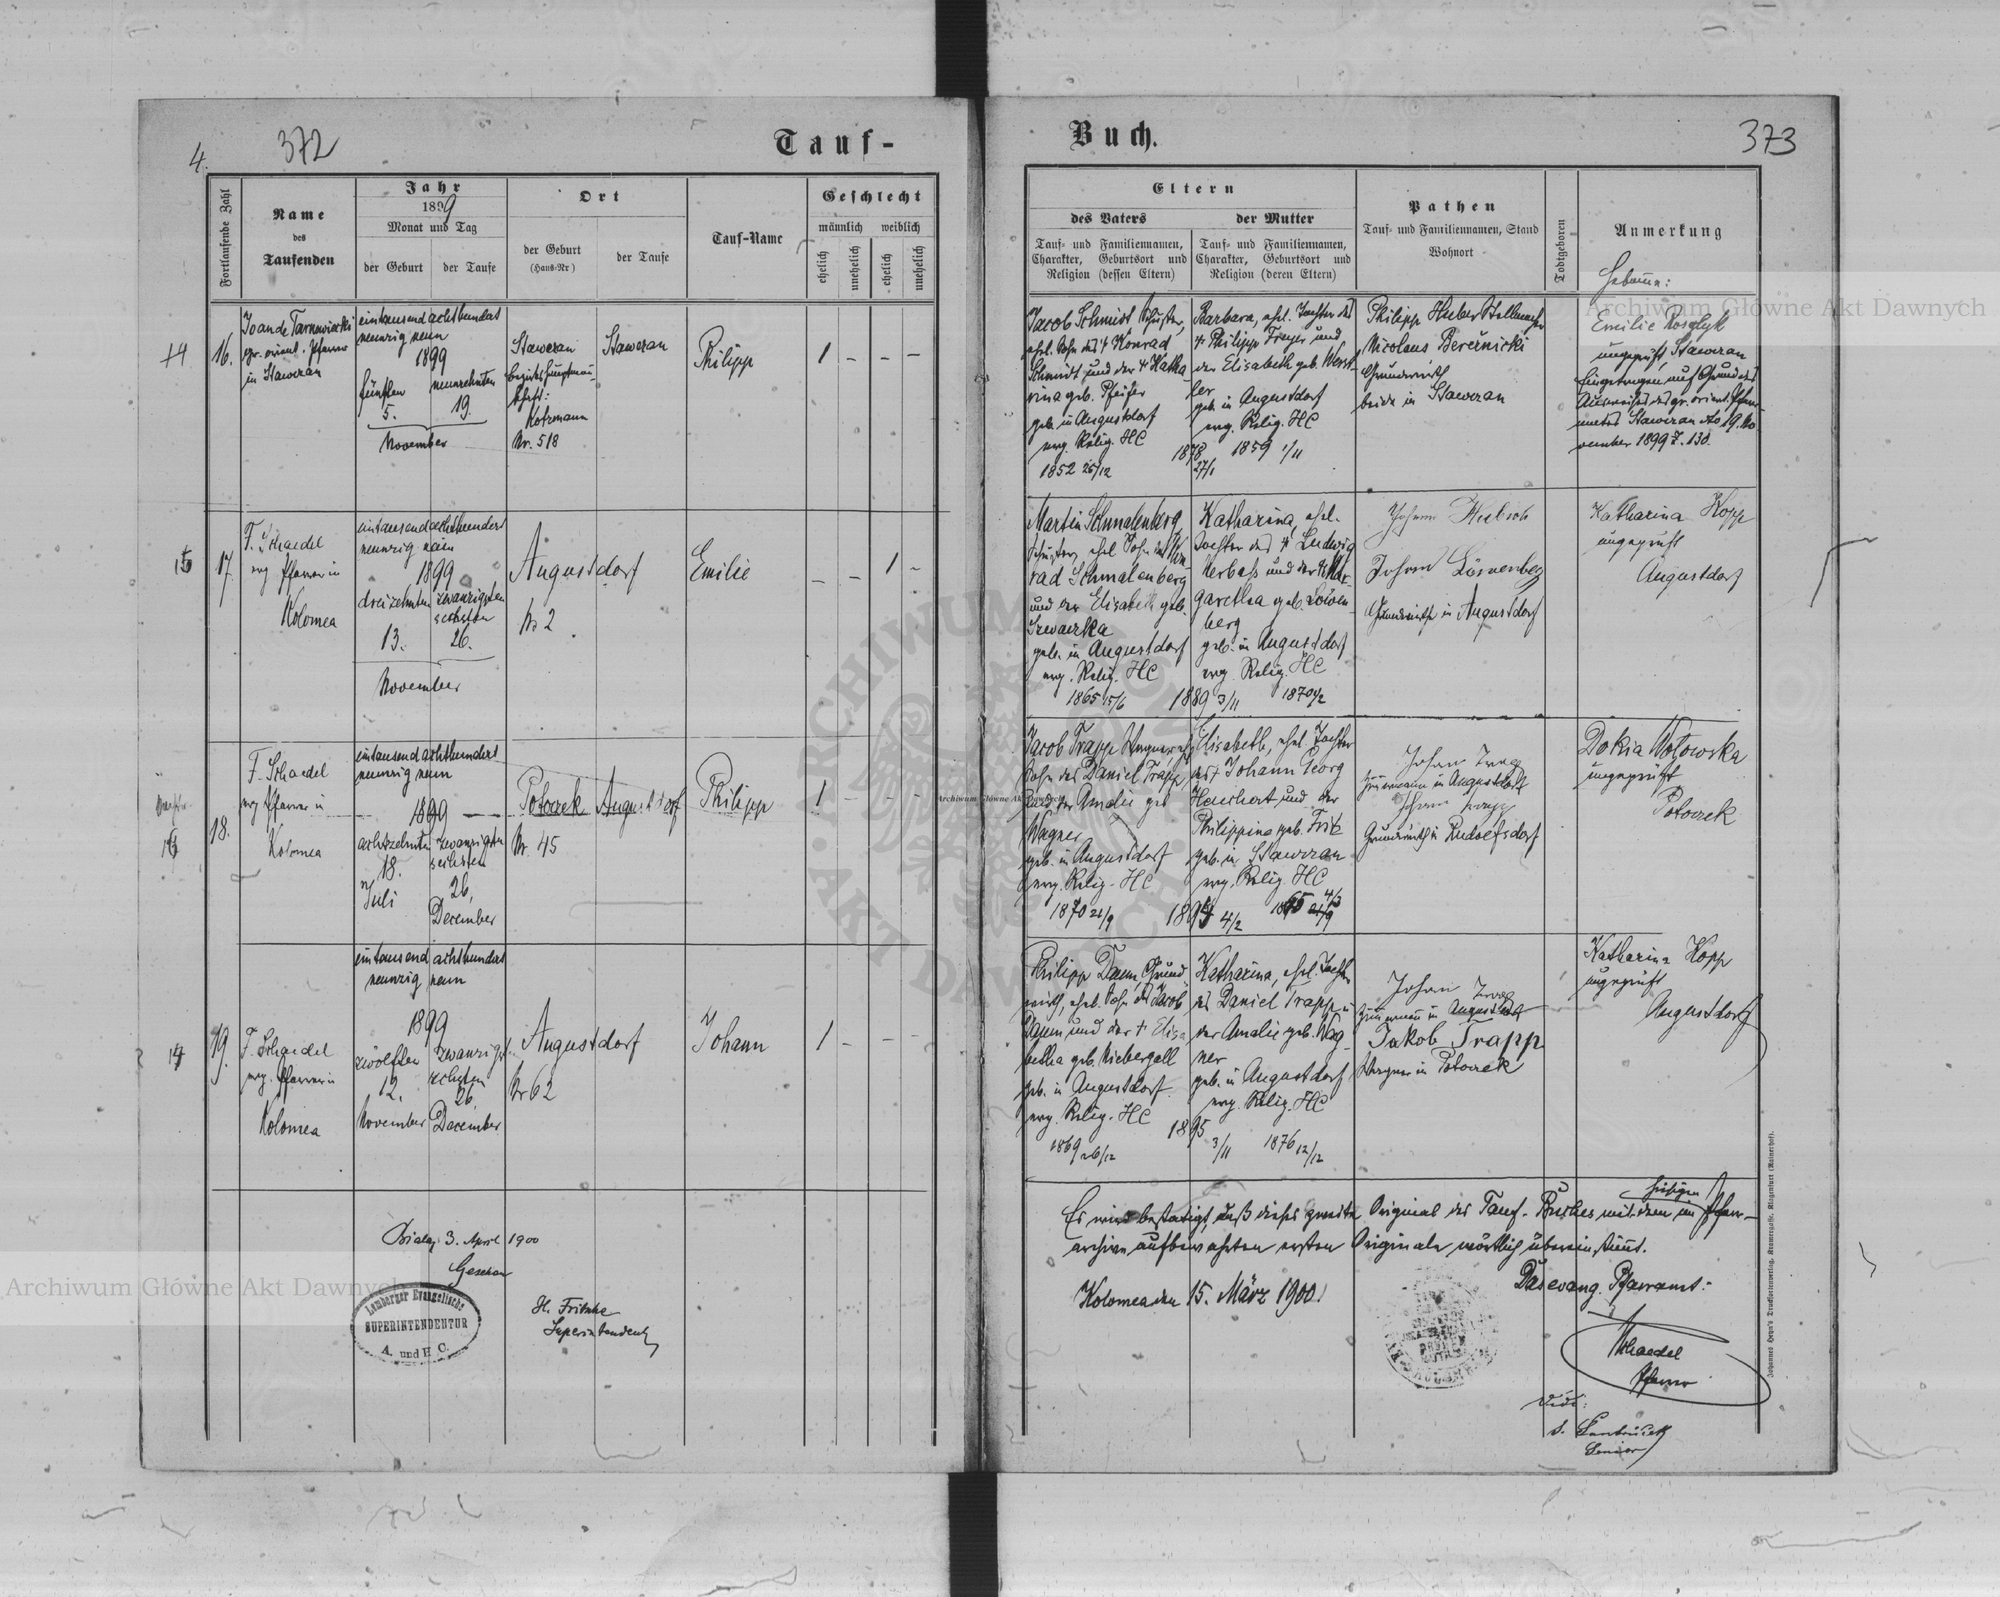 4.
372
Tauf-
Fortlaufende Zahl
Name
des
Taufenden
Jahr
1899
Monat und Tag
der Geburt
der Taufe
Ort
der Geburt
(Haus-Nr.)
der Taufe
Tauf-Name
Geschlecht
männlich
weiblich
ehelich
unehelich
ehelich
unehelich
14
16.
gr. orient. Pfarrer
in Stawczan
eintausend achthundert
neunzig neun
1899
fünften
neunzehnten
5.
19.
November
Stawczan
Kotzmann
Nr. 518
Stawczan
Philipp
1 - - -
15
17.
F. Schaedel
evg. Pfarrer in
Kolomea
eintausend achthundert
neunzig neun
1899
dreizehnten
zwanzigsten
sechsten
13.
26.
November
Augustdorf
Nr 2
Emilie
- - 1 -
16
18.
F. Schaedel
evg. Pfarrer in
Kolomea
eintausend achthundert
neunzig neun
1899
achtzehnten
zwanzigsten
sechsten
18.
26.
Juli
December
Potoczek
Nr. 45
Augustdorf
Philipp
1 - - -
17
19.
F. Schaedel
evg. Pfarrer in
Kolomea
eintausend achthundert
neunzig neun
1899
zwölften
zwanzigst
sechsten
12.
26.
November
December
Augustdorf
Nr 62
Johann
1 - - -
3. April 1900
Gesehen
Lemberger Evangelische
SUPERINTENDENTUR
A. und H. C.
H. Fritsche
Superintendent
Buch.
373
Eltern
des Vaters
der Mutter
Tauf- und Familiennamen,
Charakter, Geburtsort und
Religion (dessen Eltern)
Tauf- und Familiennamen,
Charakter, Geburtsort und
Religion (deren Eltern)
Pathen
Tauf- und Familiennamen, Stand
Wohnort
Todtgeboren
Anmerkung
Hebamme:
Jacob Schmidt Schuster,
ehel. Sohn des † Konrad
Schmidt und der † Katha
rina geb. Pfeifer
geb. in Augustdorf
evg. Relig. HC
1852 25/12
1878
27/1
Barbara, ehel. Tochter des
† Philipp Freyer und
der Elisabeth geb. Werst-
ler
geb. in Augustdorf
evg. Relig. HC
1859 1/11
Philipp Huber Stellmacher
Nicolaus Berernicki
Grundwirth
beide in Stawczan
Emilie
ungeprüft, Stawczan
Eingetragen auf Grund des
Ausweises des gr. orient. Pfarr-
amtes Stawczan dto 19. No
vember 1899 Z. 130.
Martin Schmalenberg,
Schuster, ehel. Sohn des Kon
rad Schmalenberg
und der Elisabeth geb.
geb. in Augustdorf
evg. Relig. HC
1865 15/6
1889 3/11
Katharina, ehel.
Tochter des † Ludwig
Kerbeß und der † Mar-
garetha geb. Löwen-
berg
geb. in Augustdorf
evg. Relig. HC
Johann
Johann Löwenberg
Grundwirthe in Augustdorf
Katharina Kopp
ungeprüft
Augustdorf
Jacob Trapp Wagner, ehl.
Sohn des Daniel Trapp
und der Amalie geb
Wagner
geb. in Augustdorf
evg. Relig. HC
1870 21/9
4/2
Elisabeth, ehel. Tochter
des † Johann Georg
und der
Philippina geb. Fritz
geb. in Stawczan
evg. Relig. HC
Johann
Zimmermann in Augustdorf
Johann Trapp
Grundwirth in Rudolfsdorf
Dokia Wołowska
ungeprüft
Potoczek
Philipp Daum, Grund
wirth, ehel. Sohn des Jacob
Daum und der † Elisa
betha geb. Niebergall
geb. in Augustdorf
evg. Relig. HC
1869 26/12
1895
3/11
Katharina, ehel. Tochter
des Daniel Trapp u
der Amalie geb. Wag-
ner
geb. in Augustdorf
evg. Relig. HC
1876 12/12
Johann
Zimmermann in Augustdorf
Jakob Trapp
Wagner in Potoczek
Katharina Kopp
ungeprüft
Augustdorf
Es wird bestätigt, daß dieses zweite Original des Tauf-Buches mit dem im hiesigen Pfarr-
archive aufbewahrten ersten Originale wörtlich übereinstimmt.
Kolomea den 15. März 1900.
Das evang. Pfarramt:
Schaedel
Pfarrer
Vidi:
Senior
Johannes Heyn's Druckfortenverlag, Kramergasse, Klagenfurt (Rainerhof).
Archiwum Główne Akt Dawnych
Archiwum Główne Akt Dawnych
Archiwum Główne Akt Dawnych
ARCHIWUM
AKT DAWNYCH